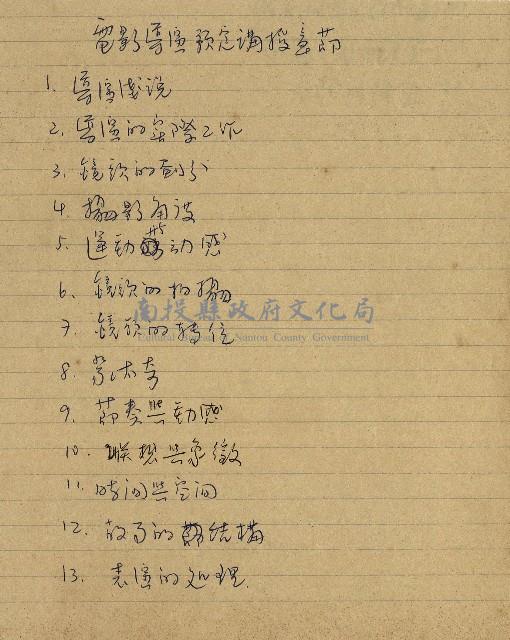 電影導演預定講授章節
1. 導演淺說
2. 導演的實際工作
3. 鏡頭的劃分
4. 攝影角度
5. 運動與动感
6. 鏡頭的拍攝
南投縣政府文化局
Cultural Affairs Nantou County Government
7. 鏡頭的轉位
8. 蒙太奇
9. 節奏與動感
10. 聯想與象徵
11. 时间與空间
12. 故事的結構
13. 表演的処理